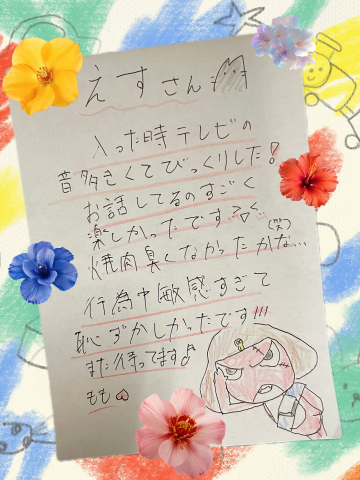 えすさん
入った時テレビの
音多きくてびっくりした!
お話してるのすごく
楽しかったです
焼肉臭くなかったかな...(笑)
行為中敏感すぎて
恥ずかしかったです!!!
また待ってます♪
もも♡